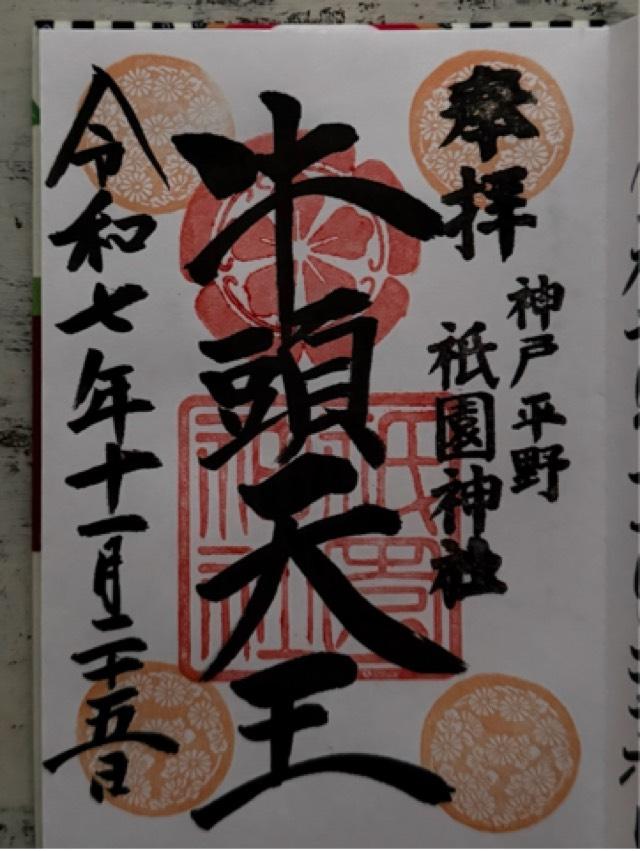 奉拝
神戸平野
祇園神社
牛頭天王
令和七年十一月二十五日
祇園神社